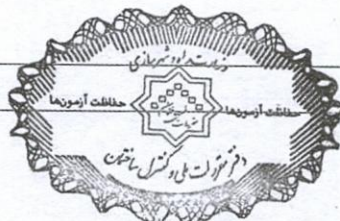 وزارت راه و شهرسازی
حفاظت آزمونها
حفاظت آزمونها
دفتر مقررات ملی و کنترل ساختمان